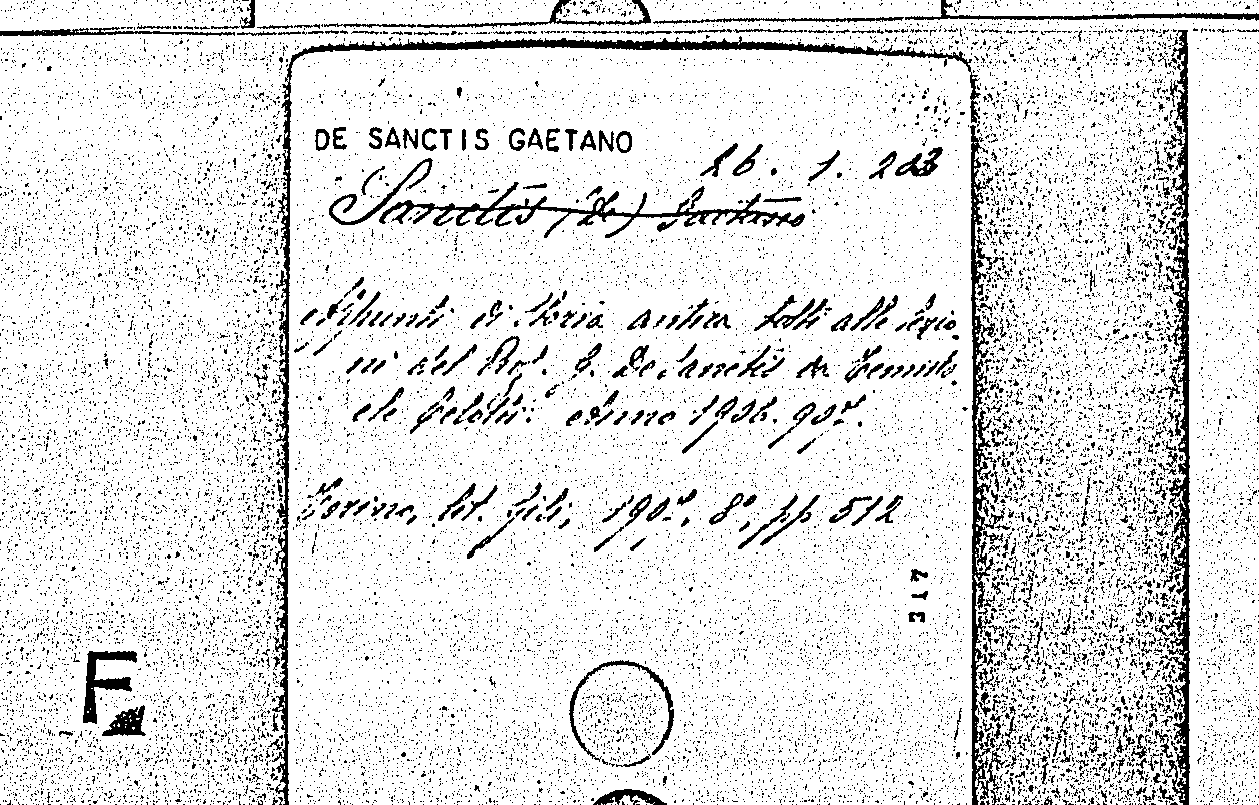 DE SANCTIS GAETANO
26. 1. 203
Sanctis (De) Gaetano
Appunti di Storia antica tolti alle lezio
ni del Prof. G. De Sanctis da
Anno 1906-907.
Torino, lit. Gili, 1907, 8º, pp 512
317
F